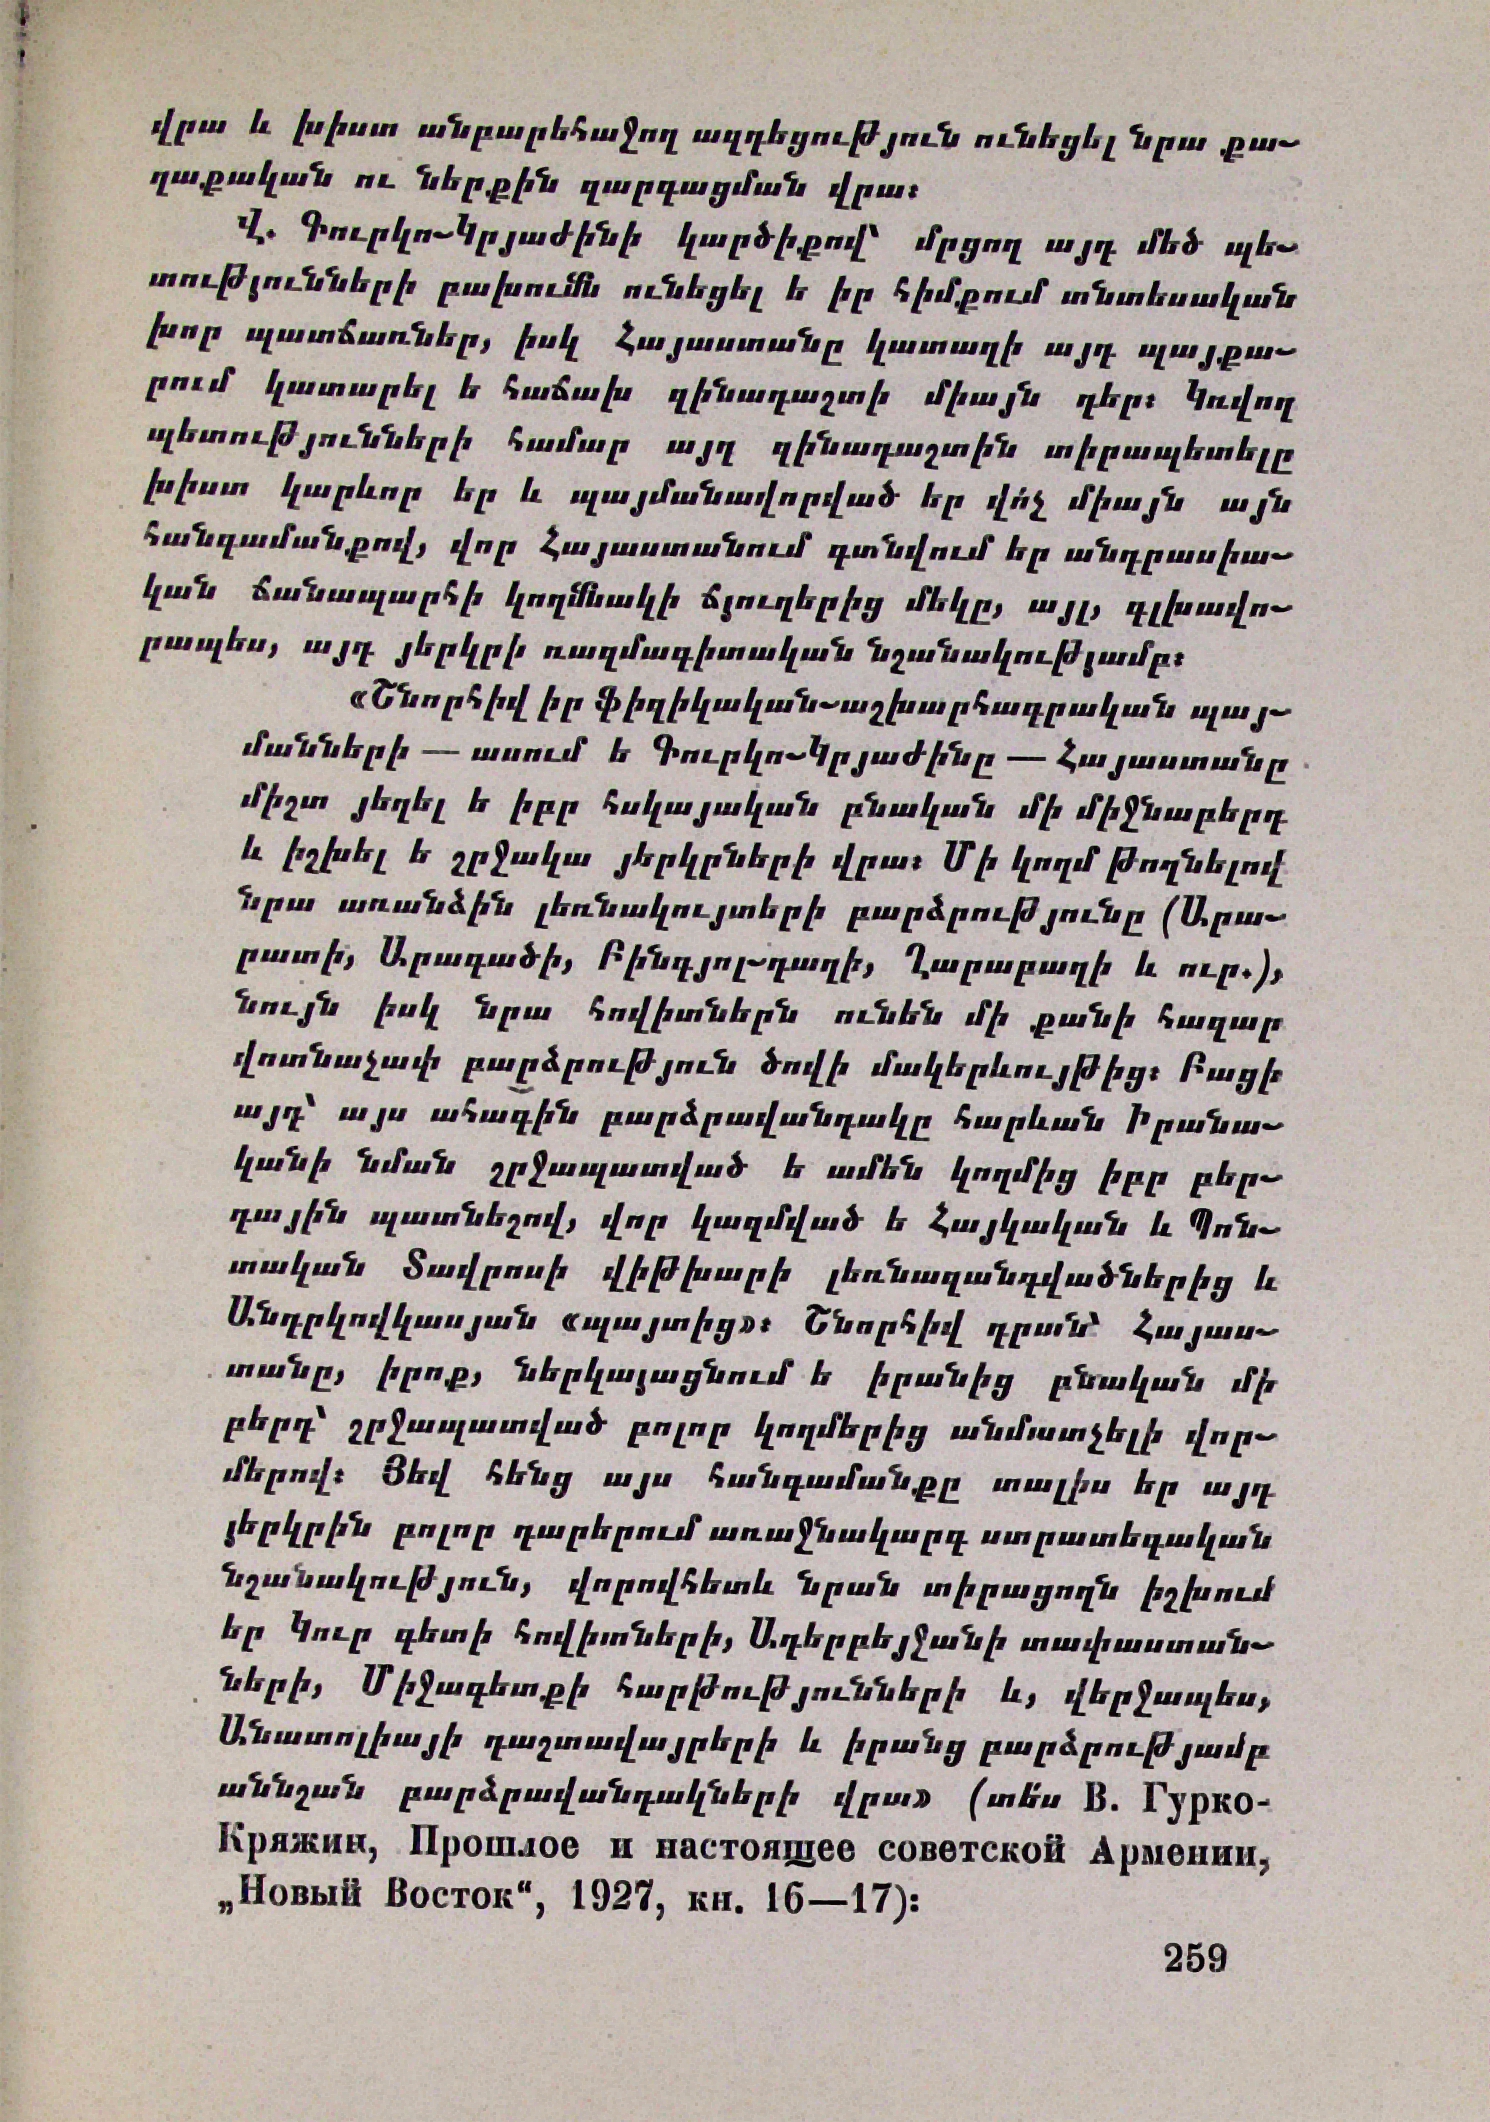 վրա և խիստ անբարեհաջող ազդեցություն ունեցել նրա քա֊
ղաքական ու ներքին զարգացման վրա։
Վ. Գուրկո֊Կրյաժինի կարծիքով՝ մրցող այդ մեծ պե֊
տությունների բախումն ունեցել ե իր հիմքում տնտեսական
խոր պատճառներ, իսկ Հայաստանը կատաղի այդ պայքա֊
րում կատարել ե հաճախ զինադաշտի միայն դեր։ Կռվող
պետությունների համար այդ զինադաշտին տիրապետելը
խիստ կարևոր եր և պայմանավորված եր վո՛չ միայն այն
հանգամանքով, վոր Հայաստանում գտնվում եր անդրասիա֊
կան ճանապարհի կողմնակի ճյուղերից մեկը, այլ, գլխավո֊
րապես, այդ յերկրի ռազմագիտական նշանակությամբ։
«Շնորհիվ իր ֆիզիկական֊աշխարհագրական պայ֊
մանների — ասում ե Գուրկո֊Կրյաժինը — Հայաստանը
միշտ յեղել ե իբր հսկայական բնական մի միջնաբերդ
և իշխել ե շրջակա յերկրների վրա։ Մի կողմ թողնելով
նրա առանձին լեռնակույտերի բարձրությունը (Արա֊
րատի, Արագածի, Բինգյոլ֊դաղի, Ղարաբաղի և ուր.),
նույն իսկ նրա հովիտներն ունեն մի քանի հազար
վոտնաչափ բարձրություն ծովի մակերևույթից։ Բացի
այդ՝ այս ահագին բարձրավանդակը հարևան Իրանա֊
կանի նման շրջապատված ե ամեն կողմից իբր բեր֊
դային պատնեշով, վոր կազմված ե Հայկական և Պոն֊
տական Տավրոսի վիթխարի լեռնազանգվածներից և
Անդրկովկասյան «պայտից»։ Շնորհիվ դրան՝ Հայաս֊
տանը, իրոք, ներկայացնում ե իրանից բնական մի
բերդ՝ շրջապատված բոլոր կողմերից անմատչելի վոր֊
մերով։ Յեվ հենց այս հանգամանքը տալիս եր այդ
յերկրին բոլոր դարերում առաջնակարգ ստրատեգական
նշանակություն, վորովհետև նրան տիրացողն իշխում
եր Կուր գետի հովիտների, Ադերբեյջանի տափաստան֊
ների, Միջագետքի հարթությունների և, վերջապես,
Անատոլիայի դաշտավայրերի և իրանց բարձրությամբ
աննշան բարձրավանդակների վրա» (տե՛ս В. Гурко-
Кряжин, Прошлое и настоящее советской Армении,
„Новый Восток“, 1927, кн. 16—17)։
259